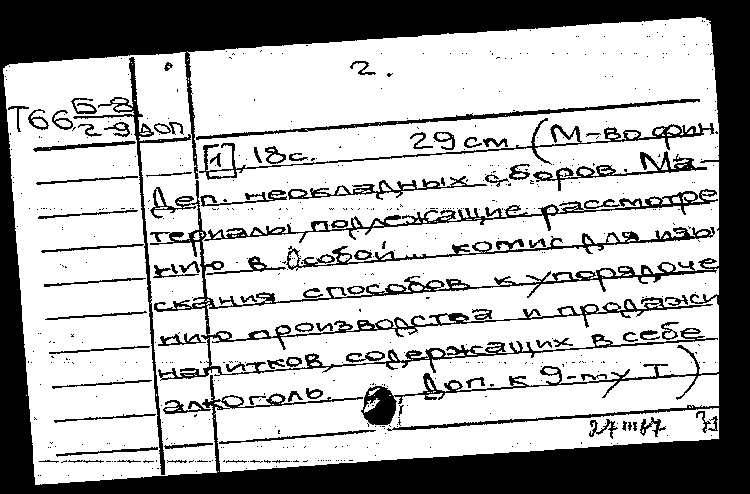 2.
Т66 Б-8
2-9 доп
[1], 18с. 29cm. (М-во фин.
Деп. неокладных сборов. Ма-
териалы, подлежащие рассмотре
нию в Особой... комис. для изы
скания способов к упорядоче
нию производства и продажи
напитков, содержащих в себе
алкоголь. Доп. к 9-му т.)
27 III 67